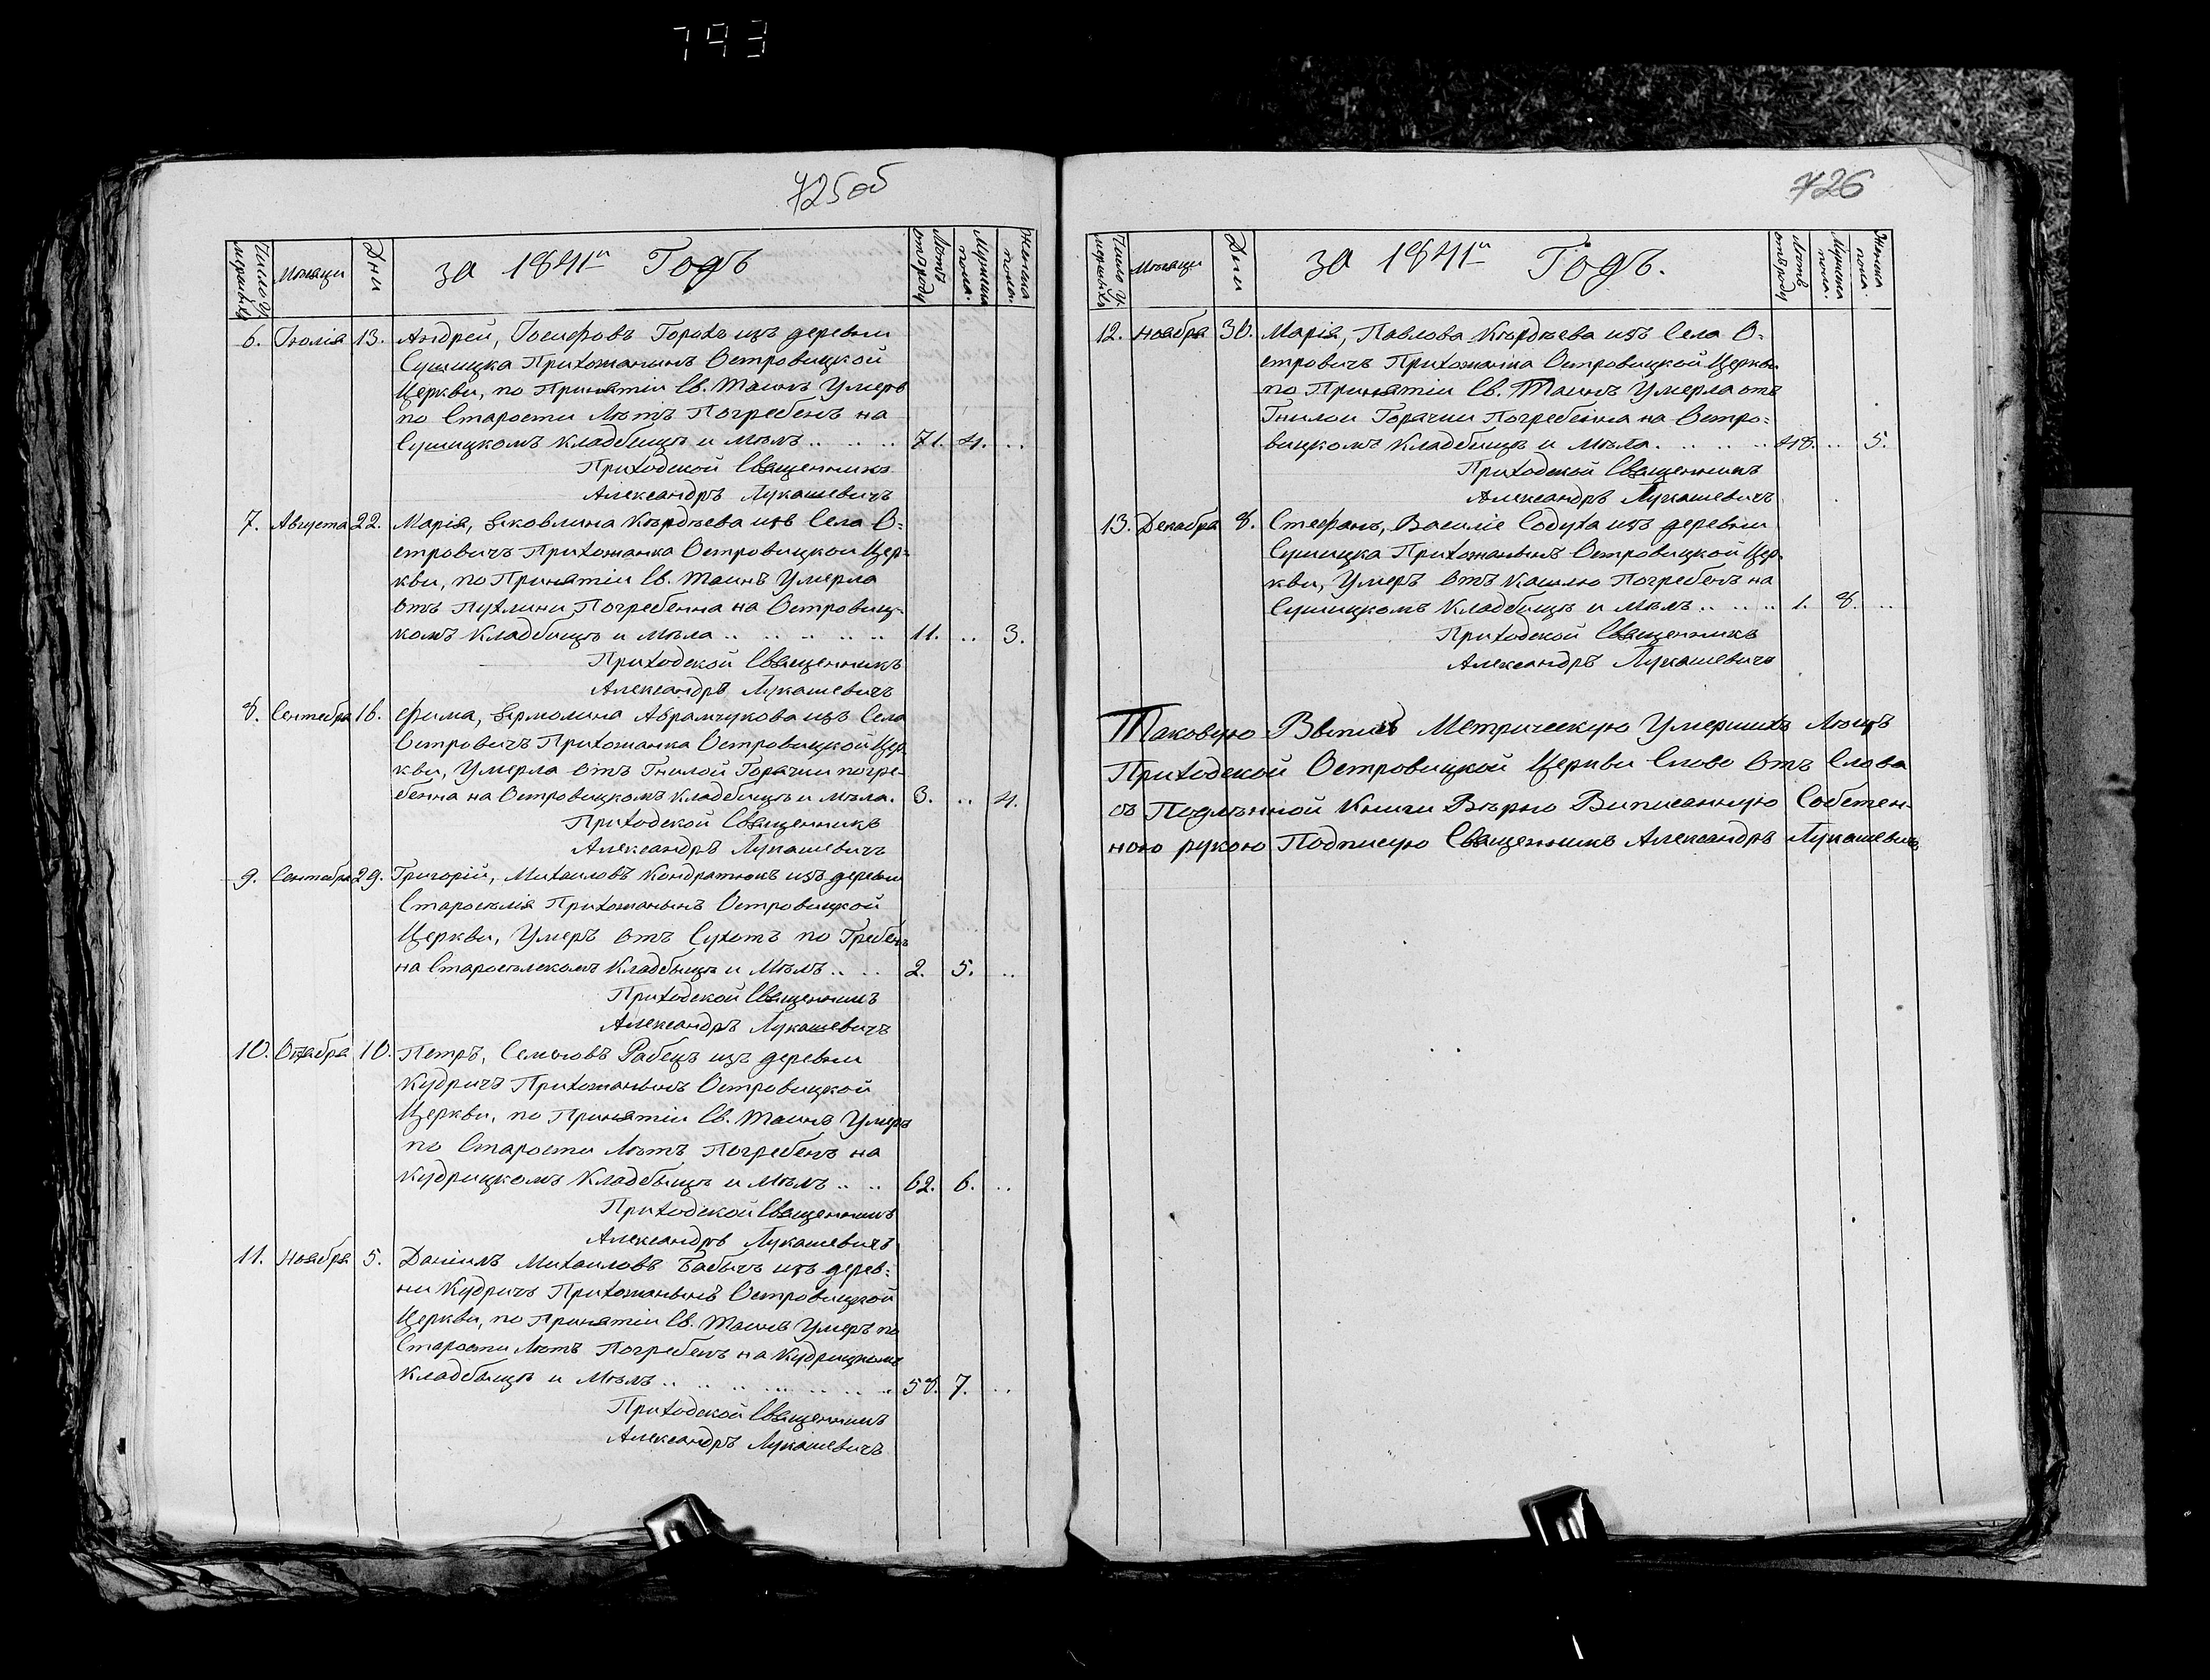 793
725об
Число умершихъ Мѣсяцы Дни за 1841й Годъ Лѣтъ отъ роду Мужска пола. Женска пола.
6. Іюлія 13. Андрей, Іосифовъ Горохъ изъ деревни
Сушицка Прихожанинъ Островицкой
Церкви, по Принятіи Св. Таинъ Умеръ
по Старости Лѣтъ Погребенъ на
Сушицкомъ Кладбищѣ и Мѣлъ .. .. .. 71. 4. ..
Приходской Священникъ
Александръ Лукашевичъ
7. Августа 22. Марія, Яковлина Кѣрдѣева изъ Села О-
стровичъ Прихожанка Островицкой Цер-
кви, по Принятіи Св. Таинъ Умерла
отъ Пухлини Погребенна на Островиц-
комъ Кладбищѣ и Мѣла .. .. .. .. .. 11. .. 3.
Приходской Священникъ
Александръ Лукашевичъ
8. Сентебра 16. Фима, Ярмолина Абрамчукова изъ Села
Островичъ Прихожанка Островицкой Цер-
кви, Умерла отъ Гнилой Горачки погре-
бенна на Островицкомъ Кладбищѣ и Мѣла. 3. .. 4.
Приходской Священникъ
Александръ Лукашевичъ
9. Сентебра 29. Григорій, Михаиловъ Кондратюкъ изъ деревни
Староселія Прихожанынъ Островицкой
Церкви, Умеръ отъ Сухотъ по Гребенъ
на Староселскомъ Кладбыщѣ и Мѣлъ .. .. 2. 5. ..
Приходской Священникъ
Александръ Лукашевичъ
10. Октабра 10. Петръ, Семеновъ Рабецъ изъ деревни
Кудричъ Прихожанынъ Островицкой
Церкви, по Принятіи Св. Таинъ Умеръ
по Старости Лѣтъ Погребенъ на
Кудрицкомъ Кладбыщѣ и Мѣлъ .. .. 62. 6. ..
Приходской Священникъ
Александръ Лукашевичъ
11. Ноабра 5. Даніилъ Михаиловъ Бабычъ изъ дерев-
ни Кудричъ Прихожанынъ Островицкой
Церкви, по Принятіи Св. Таинъ Умеръ по
Старости Лѣтъ Погребенъ на Кудрицкомъ
Кладбыщѣ и Мѣлъ .. .. .. .. .. .. .. 58. 7. ..
Приходской Священникъ
Александръ Лукашевичъ
726
Число умершихъ Мѣсяцы Дни за 1841й Годъ. Лѣтъ отъ роду Мужска пола. Женска пола.
12. Ноабра 30. Марія, Павлова Кѣрдѣева изъ Села О-
стровичъ Прихожанка Островицкой Церкви
по Принятіи Св. Таинъ Умерла отъ
Гнилои Горачки Погребенна на Остро-
вицкомъ Кладбищѣ и Мѣла .. .. .. 48. .. 5.
Приходской Священникъ
Александръ Лукашевичъ
13. Декабра 8. Стефанъ, Василіе Содуха изъ деревни
Сушицка Прихожанынъ Островицкой Цер-
кви, Умеръ отъ Кашлю Погребенъ на
Сушицкомъ Кладбищѣ и Мѣлъ .. .. .. 1. 8. ..
Приходской Священникъ
Александръ Лукашевичъ
Таковую Вѣпись Метрическую Умершихъ Лыцъ
Приходской Островицкой Церкви Слово Отъ Слова
съ Подлѣнной Книги Вѣрно Виписанную Собствен-
ною рукою Подписую Священникъ Александръ Лукашевичъ